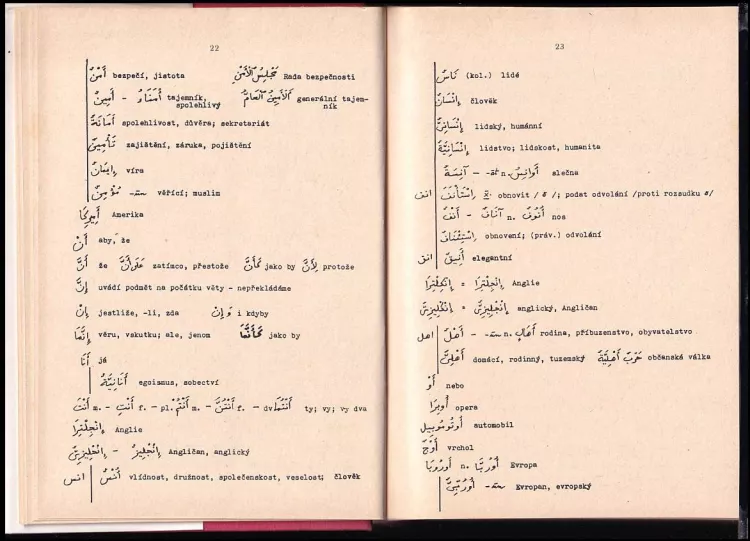 22
أَمْنٌ bezpečí, jistota مَجْلِسُ الْأَمْنِ Rada bezpečnosti
أَمِينٌ - أُمَنَاءُ tajemník, spolehlivý اَلْأَمِينُ الْعَامُّ generální tajemník
أَمَانَةٌ spolehlivost, důvěra; sekretariát
تَأْمِينٌ zajištění, záruka, pojištění
إِيمَانٌ víra
مُؤْمِنٌ věřící; muslim
أَمِيرِكَا Amerika
أَنْ aby, že
أَنَّ že عَلَى أَنَّ zatímco, přestože كَأَنَّ jako by لِأَنَّ protože
إِنَّ uvádí podmět na počátku věty - nepřekládáme
إِنْ jestliže, -li, zda وَإِنْ i kdyby
إِنَّمَا věru, vskutku; ale, jenom كَأَنَّمَا jako by
أَنَا já
أَنَانِيَّةٌ egoismus, sobectví
أَنْتَ m. - أَنْتِ f. - pl. أَنْتُمْ m. - أَنْتُنَّ f. - dv. أَنْتُمَا ty; vy; vy dva
إِنْجِلْتِرَا Anglie
إِنْجِلِيزِيٌّ - إِنْجِلِيزٌ Angličan, anglický
انس أُنْسٌ vlídnost, družnost, společenskost, veselost; člověk
23
نَاسٌ (kol.) lidé
إِنْسَانٌ člověk
إِنْسَانِيٌّ lidský, humánní
إِنْسَانِيَّةٌ lidstvo; lidskost, humanita
آنِسَةٌ - ات n. أَوَانِسُ slečna
انف اِسْتَأْنَفَ X. obnovit /s/; podat odvolání /proti rozsudku s/
أَنْفٌ - آنَافٌ n. أُنُوفٌ nos
اِسْتِئْنَافٌ obnovení; (práv.) odvolání
انق أَنِيقٌ elegantní
إِنْكِلْتِرَا = إِنْجِلْتِرَا Anglie
إِنْكِلِيزِيٌّ = إِنْجِلِيزِيٌّ anglický, Angličan
اهل أَهْلٌ - ون n. أَهَالٍ rodina, příbuzenstvo, obyvatelstvo
أَهْلِيٌّ domácí, rodinný, tuzemský حَرْبٌ أَهْلِيَّةٌ občanská válka
أَوْ nebo
أُوبِرَا opera
أُوتُومُوبِيل automobil
أَوْجٌ vrchol
أُورُوبَا n. أُورُبَّا Evropa
أُورُبِّيٌّ - ون Evropan, evropský